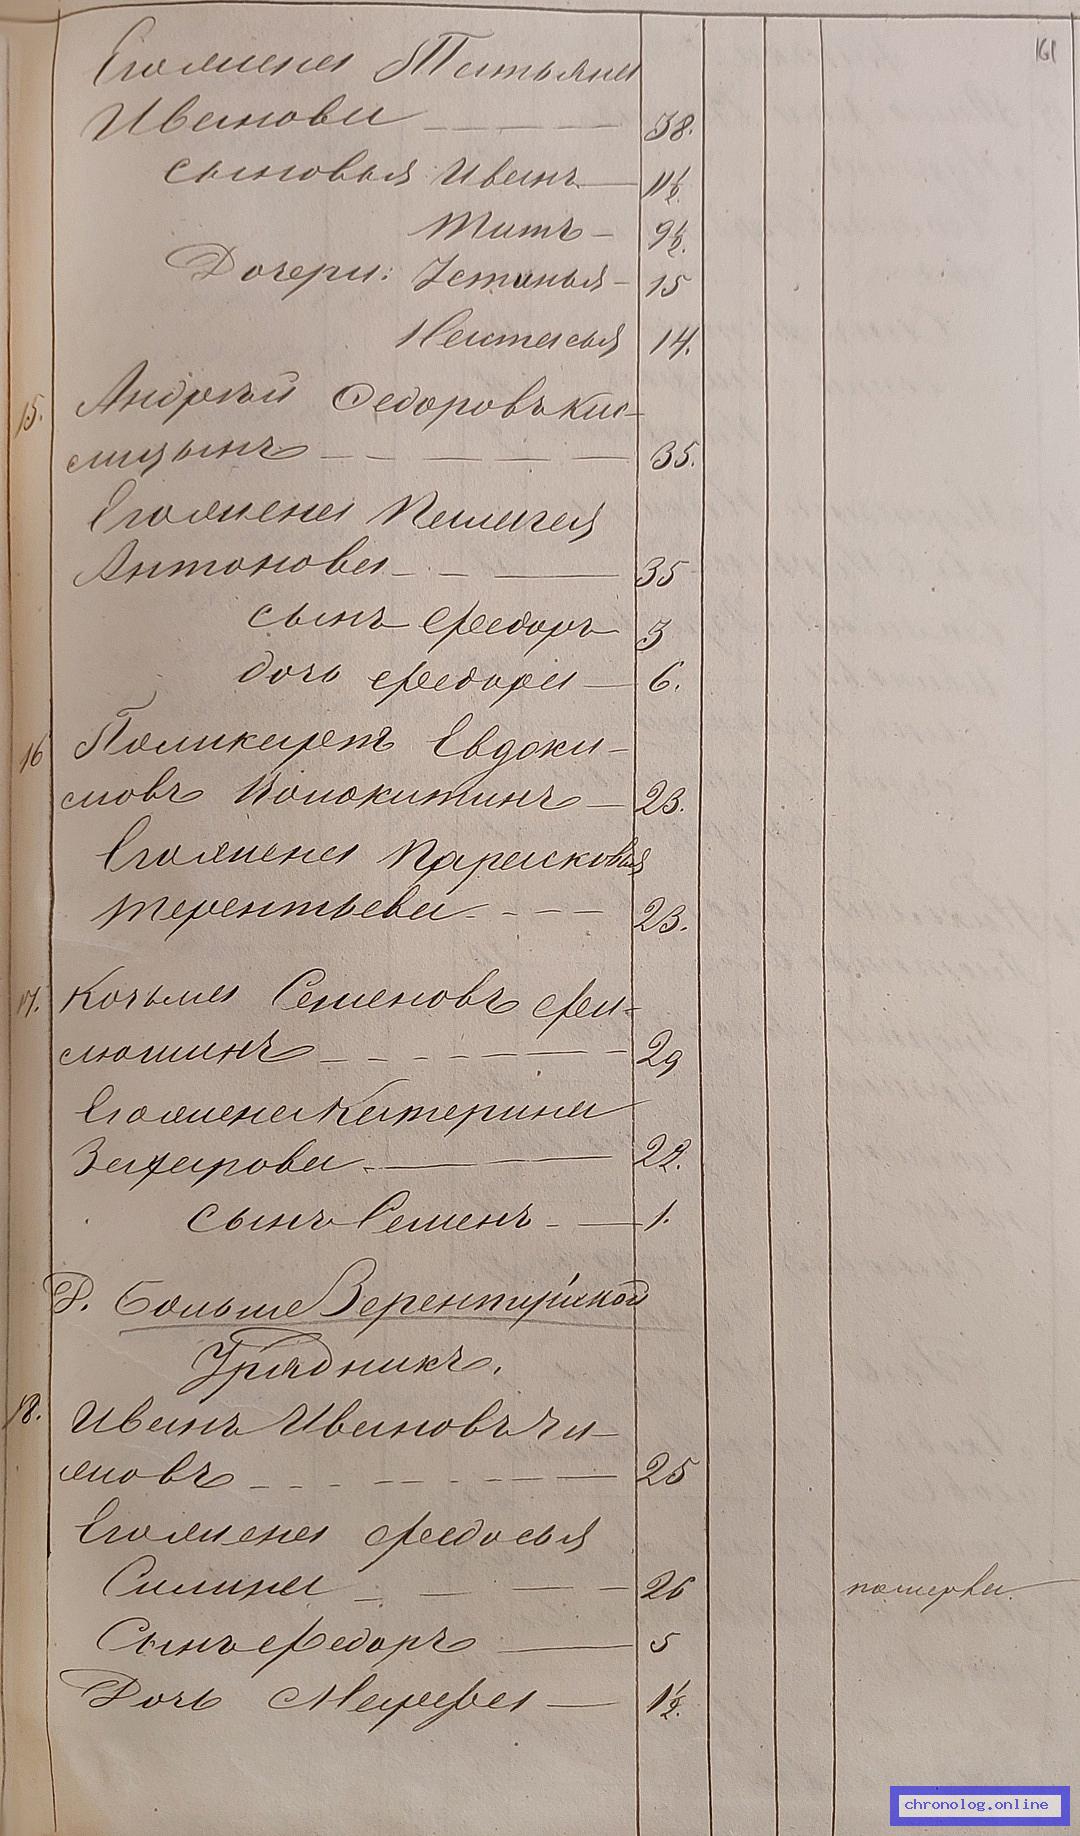 161
Его жена Татьяна
Иванова 38.
сыновья Иванъ 11½
Титъ 9½.
Дочери: Устинья 15
Настасья 14.
15. Андрей Федоровъ Кис-
лицынъ 35.
Его жена Пелагея
Антонова 35
сынъ Федоръ 3
дочь Федора 6.
16 Поликарпъ Евдоки-
мовъ Волокитинъ 23.
Его жена Парасковья
Терентьева 23.
17. Козьма Семеновъ Фи-
люшинъ 29
Его жена Катерина
Захарова 22.
сынъ Семенъ 1.
Д. Больше Веретнирской
Урядникъ.
18. Иванъ Ивановъ
25
Его жена Федосья
Силина 26 померла
Сынъ Федоръ 5
Дочь Марфа 1½.
chronolog.online